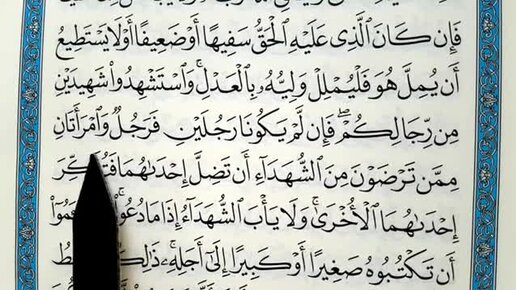 فَإِن كَانَ ٱلَّذِى عَلَيْهِ ٱلْحَقُّ سَفِيهًا أَوْ ضَعِيفًا أَوْ لَا يَسْتَطِيعُ
أَن يُمِلَّ هُوَ فَلْيُمْلِلْ وَلِيُّهُۥ بِٱلْعَدْلِۚ وَٱسْتَشْهِدُوا۟ شَهِيدَيْنِ
مِن رِّجَالِكُمْۖ فَإِن لَّمْ يَكُونَا رَجُلَيْنِ فَرَجُلٌ وَٱمْرَأَتَانِ
مِمَّن تَرْضَوْنَ مِنَ ٱلشُّهَدَآءِ أَن تَضِلَّ إِحْدَىٰهُمَا فَتُذَكِّرَ
إِحْدَىٰهُمَا ٱلْأُخْرَىٰۚ وَلَا يَأْبَ ٱلشُّهَدَآءُ إِذَا مَا دُعُوا۟ۚ
أَن تَكْتُبُوهُ صَغِيرًا أَوْ كَبِيرًا إِلَىٰٓ أَجَلِهِۦۚ